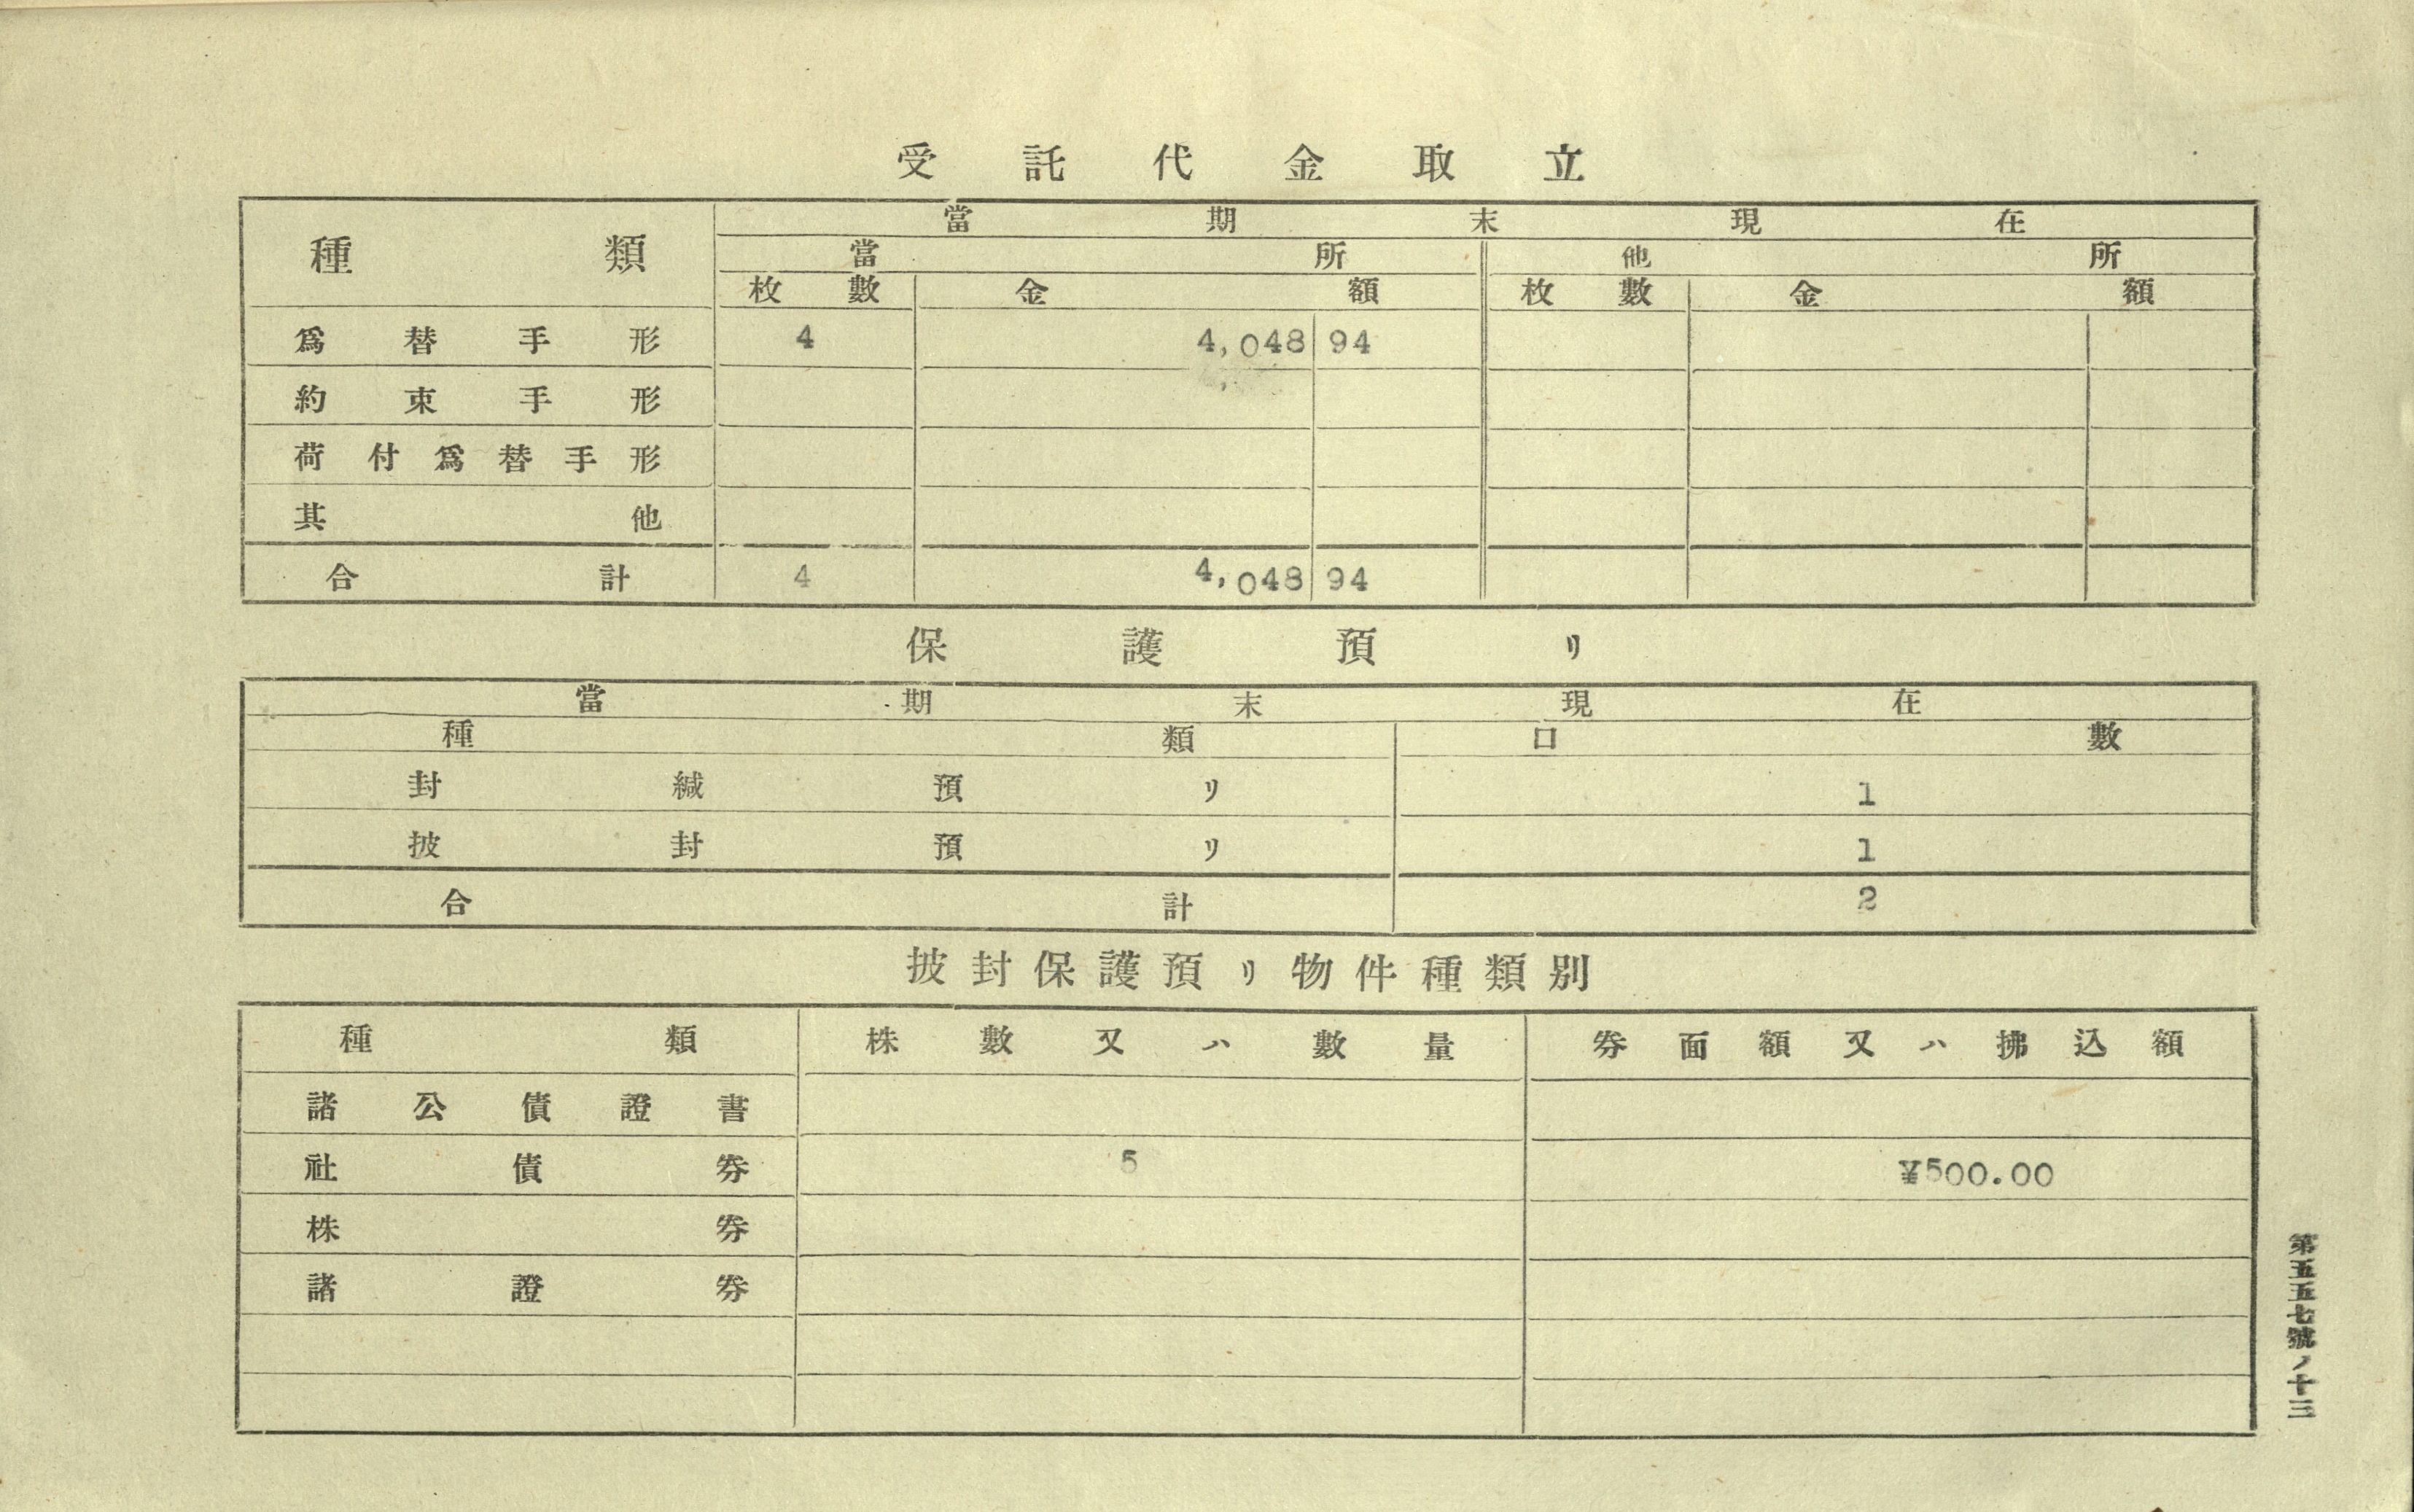 受託代金取立
種類 當期末現在
當所 他所
枚數 金額 枚數 金額
爲替手形 4 4,048 94
約束手形
荷付爲替手形
其他
合計 4 4,048 94
保護預リ
當期末現在
種類 口數
封緘預リ 1
披封預リ 1
合計 2
披封保護預リ物件種類別
種類 株數又ハ數量 券面額又ハ拂込額
諸公債證書
社債券 5 ¥500.00
株券
諸證券
第五五七號ノ十三